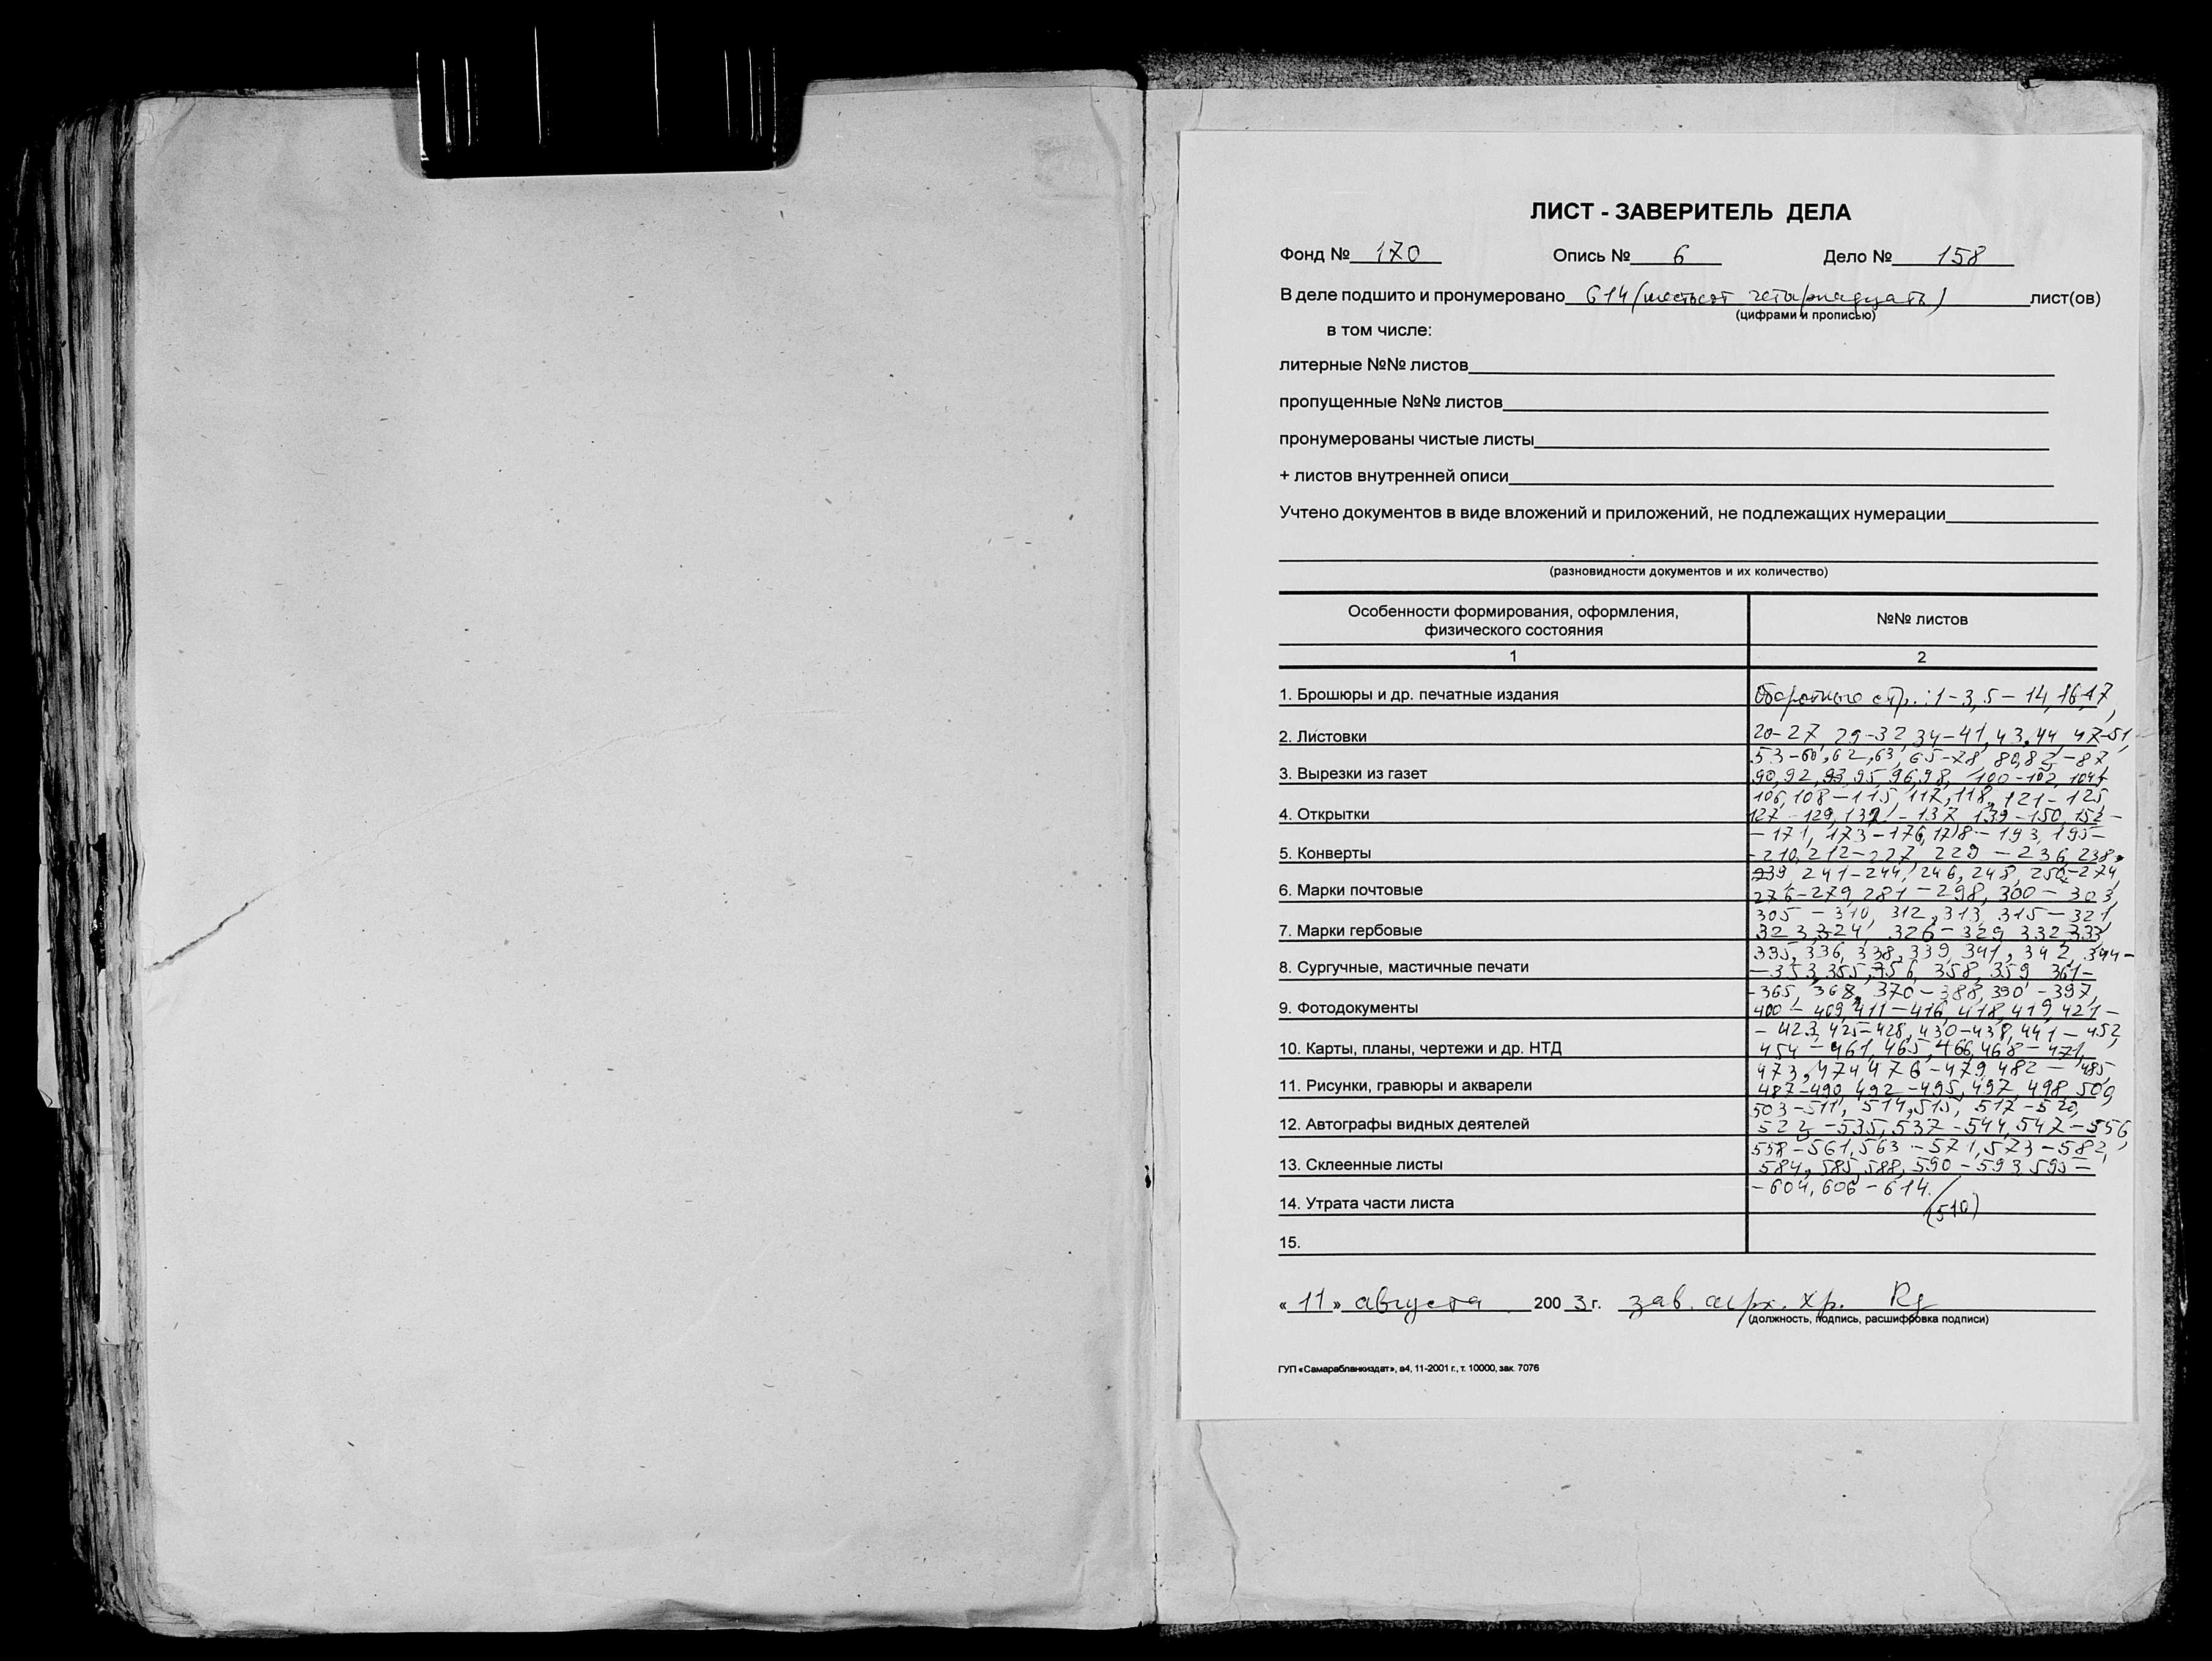 ЛИСТ - ЗАВЕРИТЕЛЬ ДЕЛА
Фонд № 170 Опись № 6 Дело № 158
В деле подшито и пронумеровано 614 (шестьсот четырнадцать) лист(ов)
(цифрами и прописью)
в том числе:
литерные №№ листов
пропущенные №№ листов
пронумерованы чистые листы
+ листов внутренней описи
Учтено документов в виде вложений и приложений, не подлежащих нумерации
(разновидности документов и их количество)
Особенности формирования, оформления,
физического состояния
№№ листов
1
2
1. Брошюры и др. печатные издания
Оборотные стр.: 1-3, 5-14, 16,17,
2. Листовки
20-27, 29-32, 34-41, 43,44, 47-51,
53-60, 62,63, 65-78, 80,82-87,
3. Вырезки из газет
90,92,93,95,96,98, 100-102, 104,
106,108-115, 117,118, 121-125,
4. Открытки
127-129, 132-137, 139-150, 152-
-171, 173-176, 178-193, 195-
5. Конверты
-210, 212-227, 229-236, 238,
239, 241-244, 246, 248, 250-274,
6. Марки почтовые
276-279, 281-298, 300-303,
305-310, 312,313, 315-321,
7. Марки гербовые
323,324, 326-329, 332,333,
335,336, 338,339, 341, 342, 344-
8. Сургучные, мастичные печати
-353,355,356, 358,359, 361-
-365, 368, 370-388, 390-397,
9. Фотодокументы
400-409, 411-416, 418,419, 421-
-423, 425-428, 430-438, 441-452,
10. Карты, планы, чертежи и др. НТД
454-461, 465,466, 468-471,
473,474, 476-479, 482-485,
11. Рисунки, гравюры и акварели
487-490, 492-495, 497,498, 500,
503-511, 514,515, 517-520,
12. Автографы видных деятелей
522-535, 537-544, 547-556,
558-561, 563-571, 573-582,
13. Склеенные листы
584, 585, 588, 590-593, 595-
-604, 606-614.
14. Утрата части листа
(510)
15.
« 11 » августа 200 3 г. зав. арх. хр.
(должность, подпись, расшифровка подписи)
ГУП «Самарабланкиздат», а4, 11-2001 г., т. 10000, зак. 7076